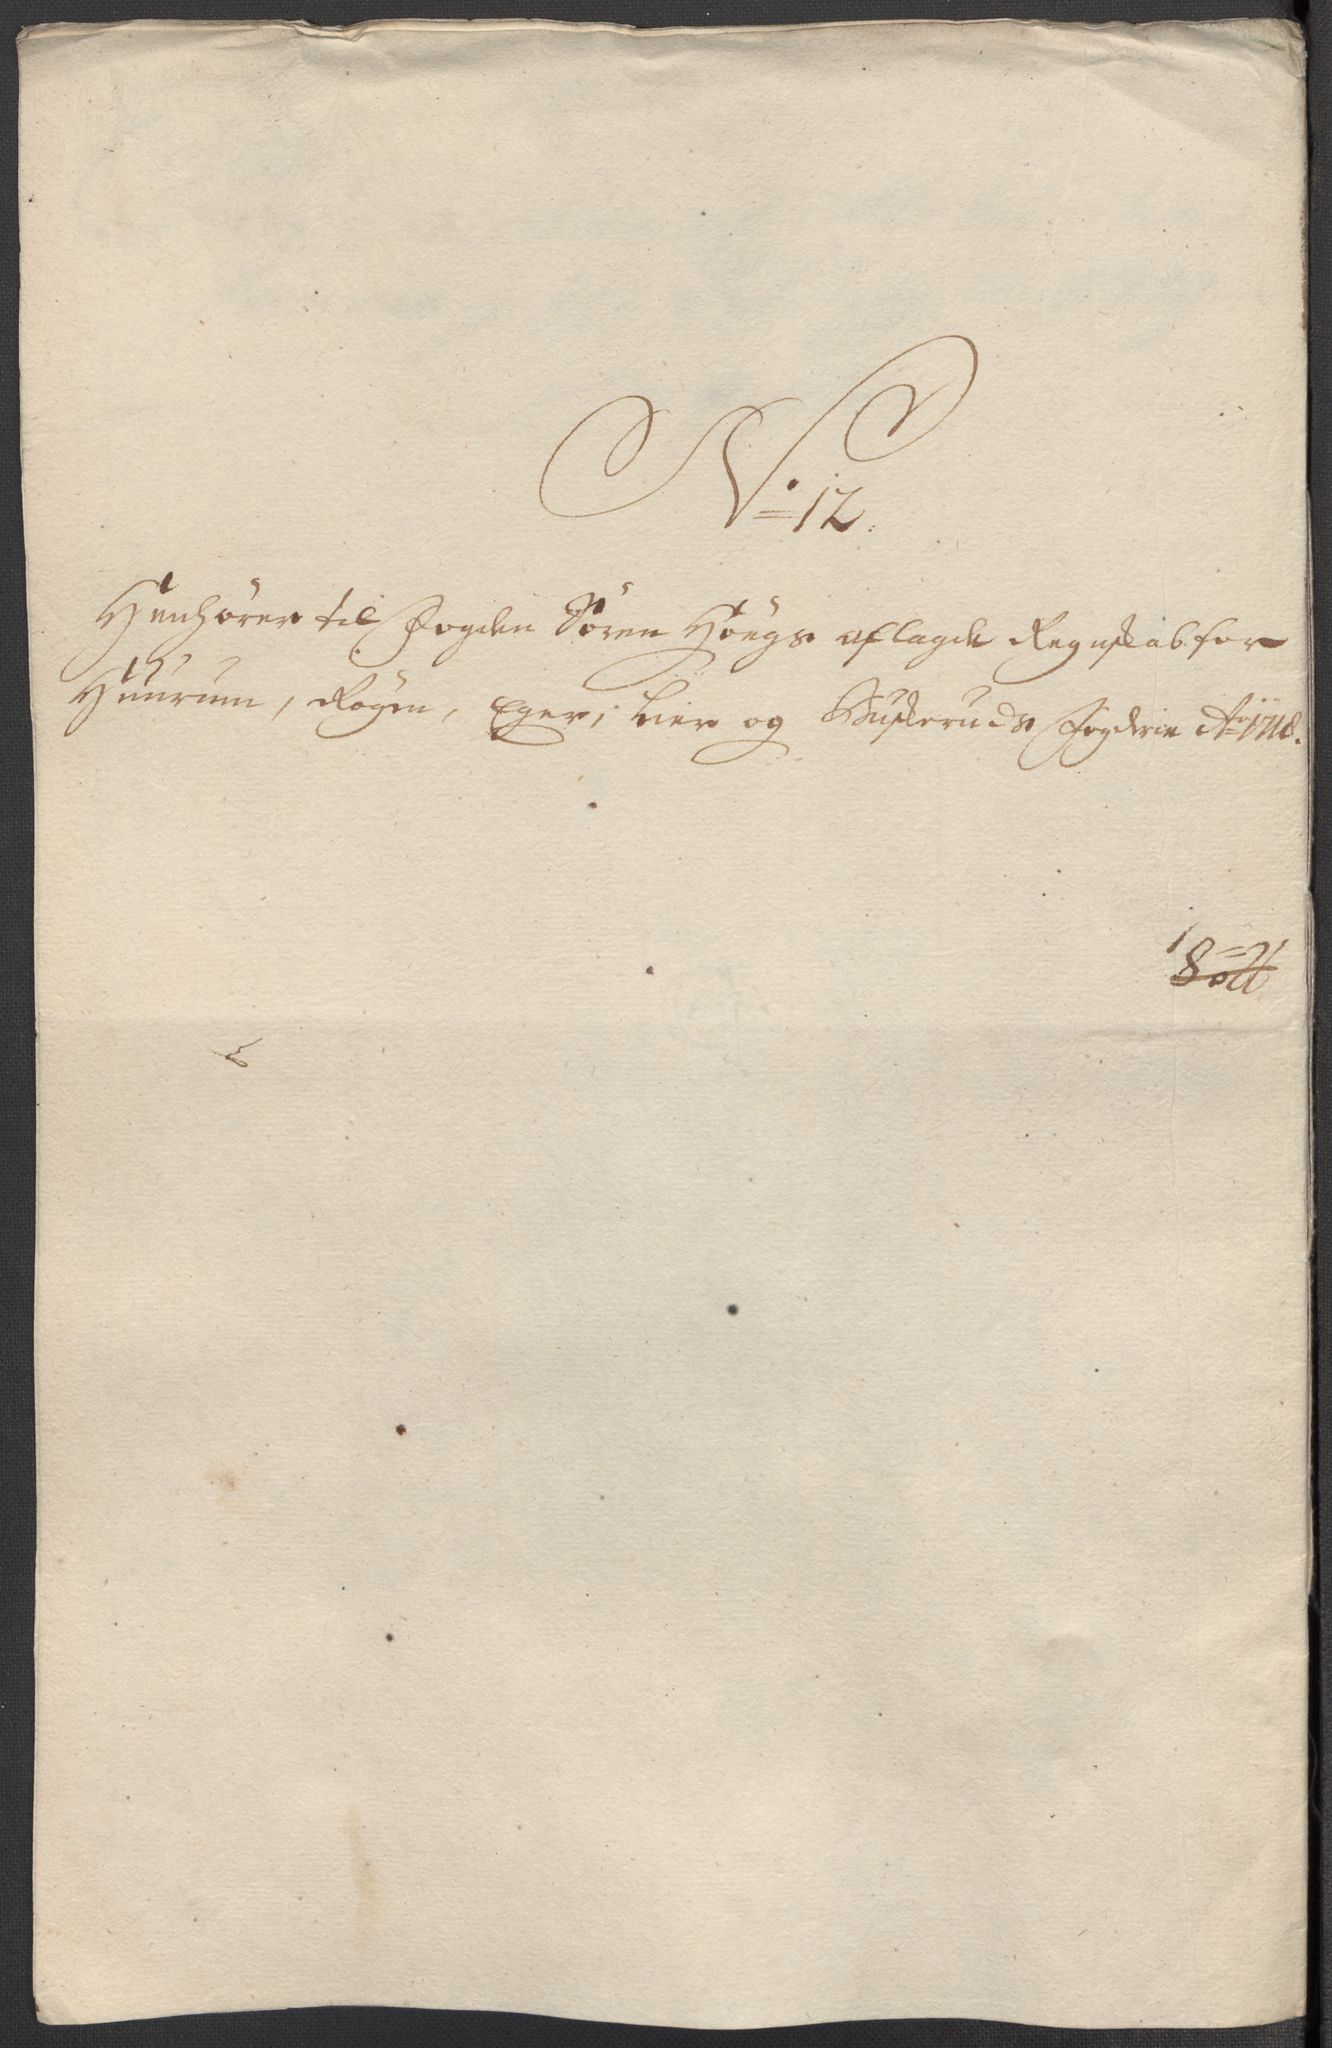 No 12.
Henhører til Fogden Sören Höegs aflagde Regnskab for
Huurum, Røgen, Eger, Lier og Buskeruds Fogderie Ao 1718.